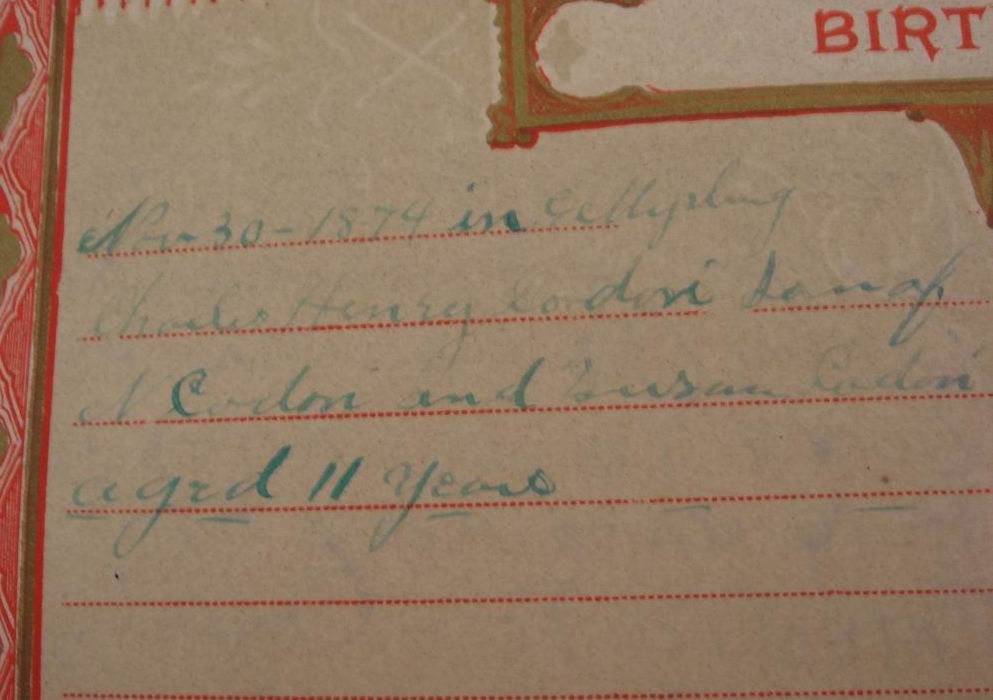 BIRT
Nov-30-1874 in Gettysburg
Charles Henry Codori Son of
N Codori and Susan Codori
aged 11 Years